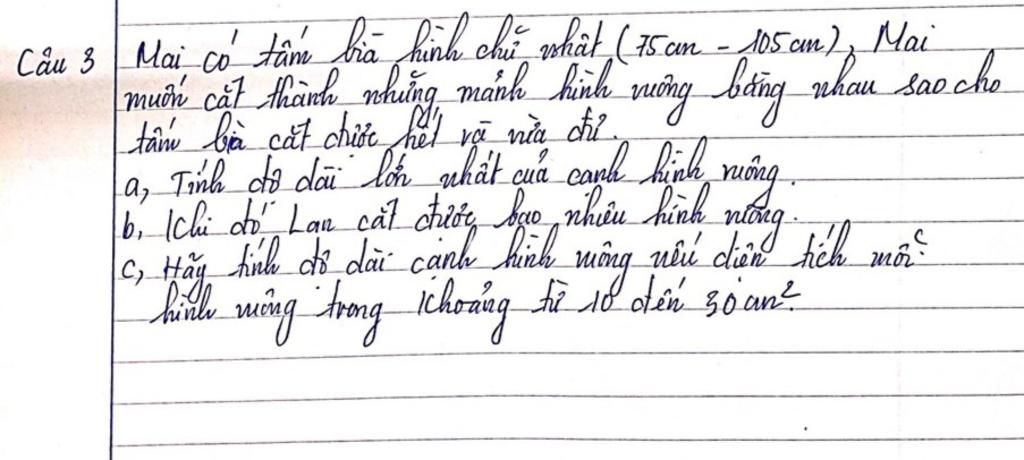 Câu 3 Mai có tấm bìa hình chữ nhật (75cm - 105cm), Mai
muốn cắt thành những mảnh hình vuông bằng nhau sao cho
tấm bìa cắt được hết và vừa đủ.
a, Tính độ dài lớn nhất của cạnh hình vuông.
b, Khi đó Lan cắt được bao nhiêu hình vuông.
c, Hãy tính độ dài cạnh hình vuông nếu diện tích mỗi
hình vuông trong khoảng từ 10 đến 30 cm²